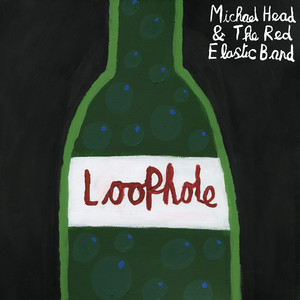 Michael Head
& The Red
Elastic Band
Loophole